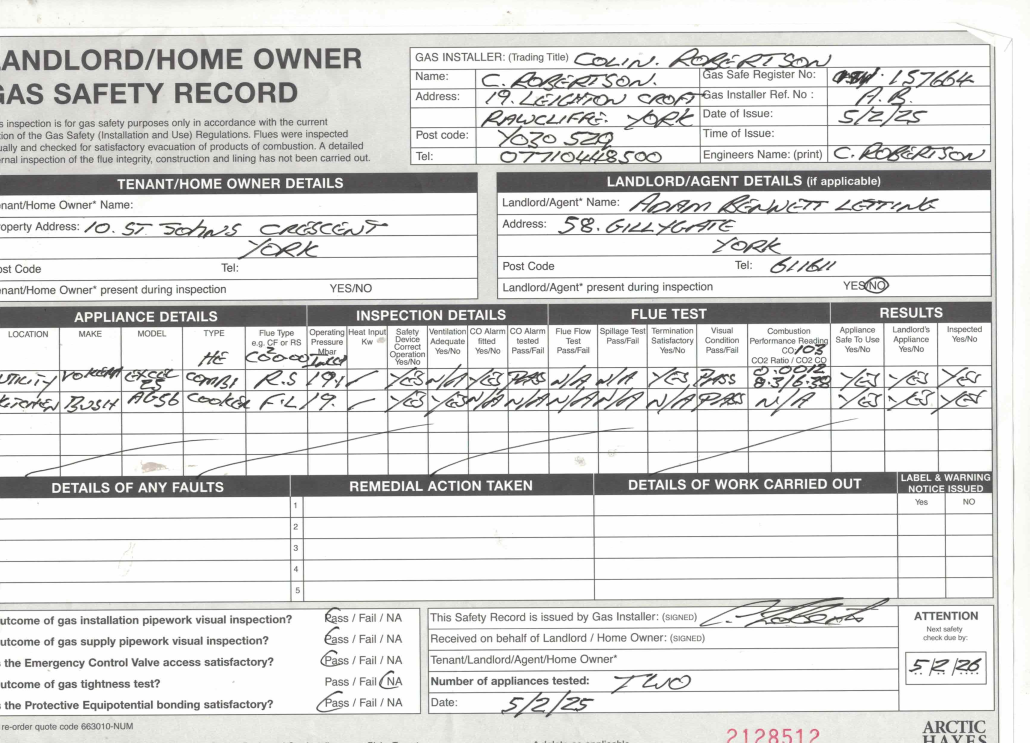 LANDLORD/HOME OWNER
GAS SAFETY RECORD
is inspection is for gas safety purposes only in accordance with the current
tion of the Gas Safety (Installation and Use) Regulations. Flues were inspected
ually and checked for satisfactory evacuation of products of combustion. A detailed
ernal inspection of the flue integrity, construction and lining has not been carried out.
GAS INSTALLER: (Trading Title) COLIN. ROBERTSON
Name: C. ROBERTSON. Gas Safe Register No: 157664
Address: 19. LEIGHTON CROFT Gas Installer Ref. No : A.B.
RAWCLIFFE. YORK Date of Issue: 5/2/25
Post code: YO30 5ZQ Time of Issue:
Tel: 07710448500 Engineers Name: (print) C. ROBERTSON
TENANT/HOME OWNER DETAILS
enant/Home Owner* Name:
roperty Address: 10. ST. JOHNS CRESCENT
YORK
ost Code Tel:
enant/Home Owner* present during inspection YES/NO
LANDLORD/AGENT DETAILS (if applicable)
Landlord/Agent* Name: ADAM BENNETT LETTING
Address: 58. GILLYGATE
YORK
Post Code Tel: 611611
Landlord/Agent* present during inspection YES/NO
APPLIANCE DETAILS INSPECTION DETAILS FLUE TEST RESULTS
LOCATION MAKE MODEL TYPE HE Flue Type e.g. CF or RS Operating Pressure Mbar Heat Input Kw Safety Device Correct Operation Yes/No Ventilation Adequate Yes/No CO Alarm fitted Yes/No CO Alarm tested Pass/Fail Flue Flow Test Pass/Fail Spillage Test Pass/Fail Termination Satisfactory Yes/No Visual Condition Pass/Fail Combustion Performance Reading CO2 Ratio / CO2 CO Appliance Safe To Use Yes/No Landlord's Appliance Yes/No Inspected Yes/No
UTILITY VOKERA EXCEL 25 COMBI R.S 19. YES N/A YES PASS N/A N/A YES PASS 0.0012 YES YES YES
KITCHEN BUSH AG56 COOKER F.L 19. YES YES N/A N/A N/A N/A N/A PASS N/A YES YES YES
DETAILS OF ANY FAULTS REMEDIAL ACTION TAKEN DETAILS OF WORK CARRIED OUT LABEL & WARNING NOTICE ISSUED
Yes NO
1
2
3
4
5
utcome of gas installation pipework visual inspection? Pass / Fail / NA
utcome of gas supply pipework visual inspection? Pass / Fail / NA
s the Emergency Control Valve access satisfactory? Pass / Fail / NA
utcome of gas tightness test? Pass / Fail / NA
s the Protective Equipotential bonding satisfactory? Pass / Fail / NA
This Safety Record is issued by Gas Installer: (SIGNED)
Received on behalf of Landlord / Home Owner: (SIGNED)
Tenant/Landlord/Agent/Home Owner*
Number of appliances tested: TWO
Date: 5/2/25
ATTENTION
Next safety
check due by:
5/2/26
re-order quote code 663010-NUM
2128512
ARCTIC
HAYES